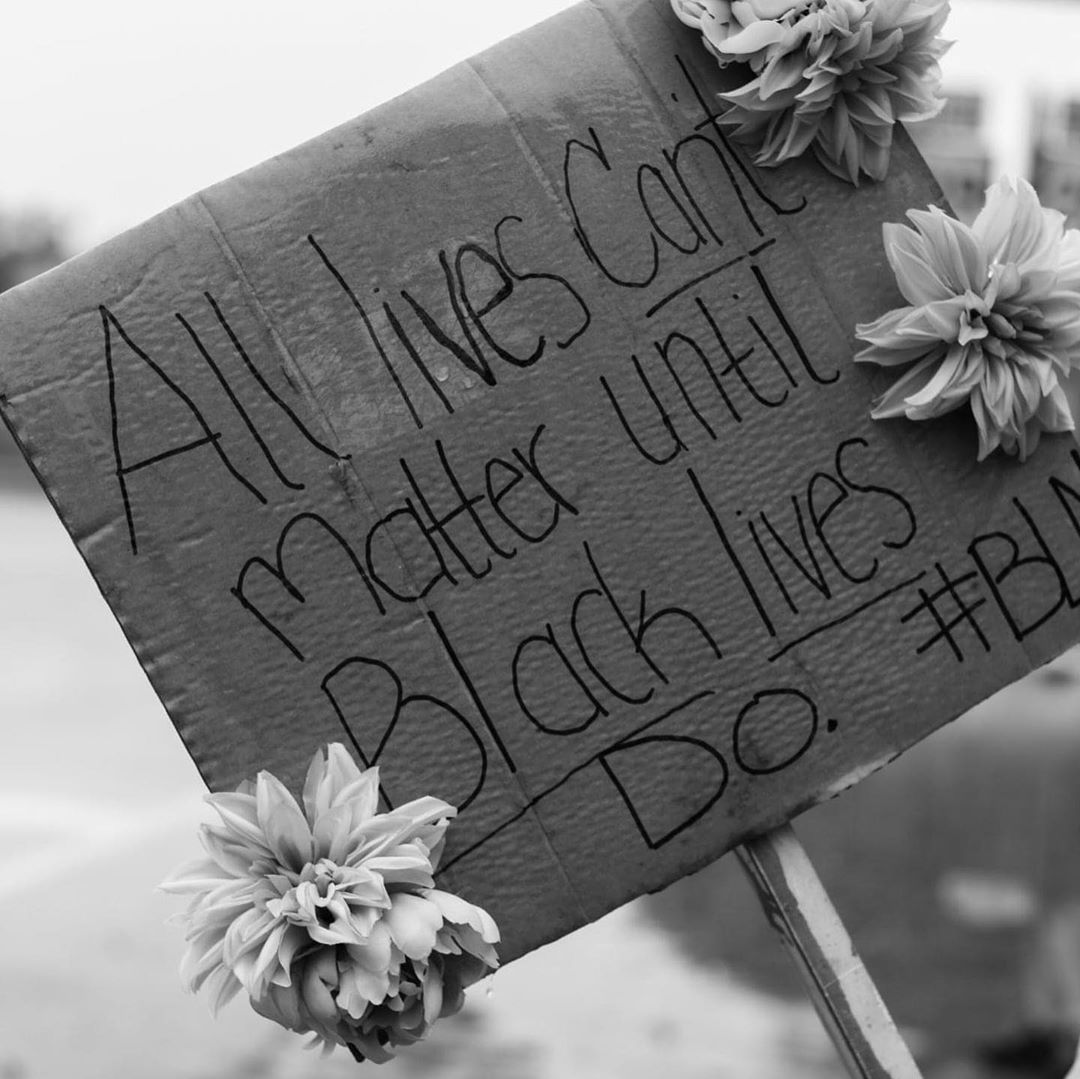 All lives Can't
matter until
Black lives
Do. #BL